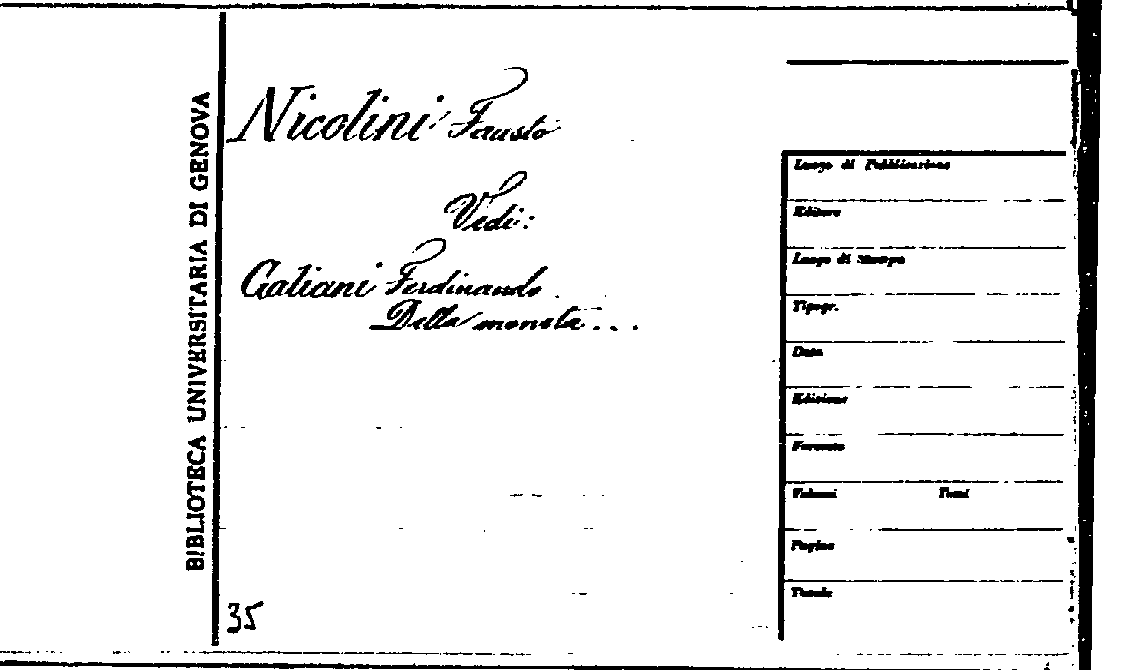 BIBLIOTECA UNIVERSITARIA DI GENOVA
Nicolini Fausto
Vedi:
Galiani Ferdinando
Della moneta...
35
Luogo di Pubblicazione
Editore
Luogo di Stampa
Tipogr.
Data
Edizione
Formato
Volumi Tomi
Pagine
Tavole